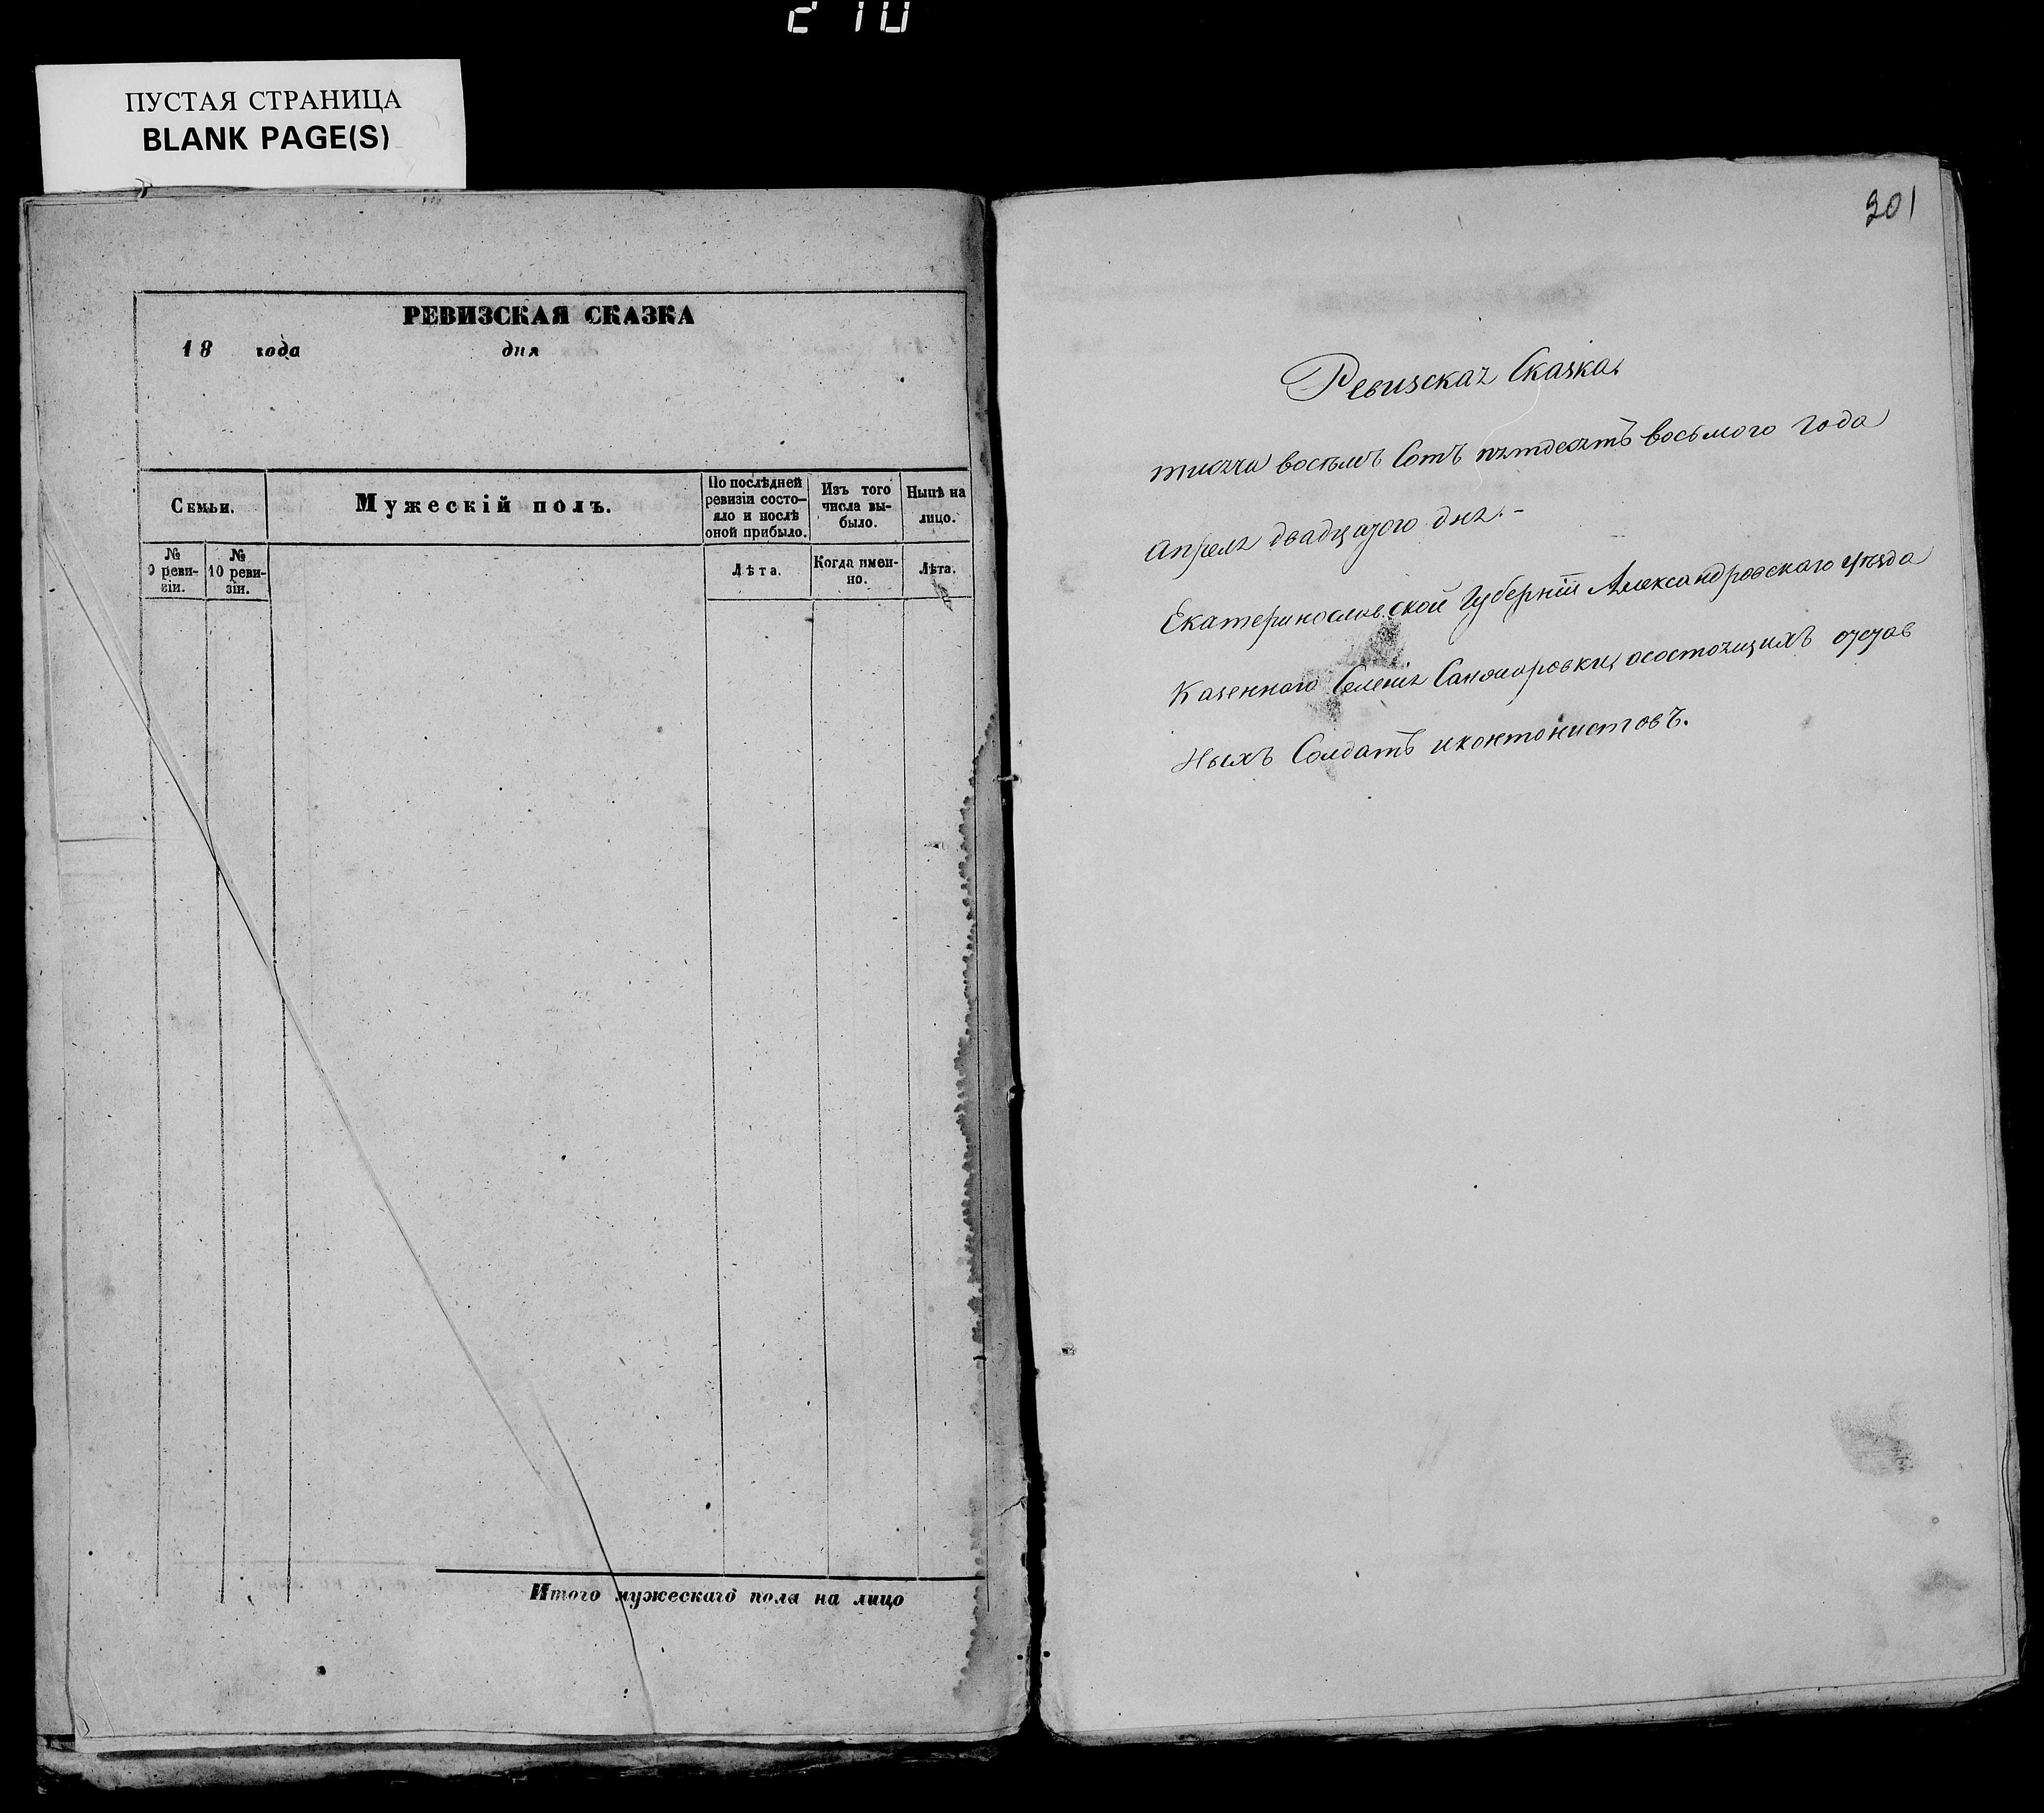 210
ПУСТАЯ СТРАНИЦА
BLANK PAGE(S)
РЕВИЗСКАЯ СКАЗКА
18 года дня
Семьи.
Мужескій полъ.
По послѣдней
ревизіи состо-
яло и послѣ
оной прибыло.
Изъ того
числа вы-
было.
Нынѣ на
лицо.
№
9 реви-
зіи.
№
10 реви-
зіи.
Лѣта.
Когда имен-
но.
Лѣта.
Итого мужескаго пола на лицо
301
Ревизская Сказка.
тисяча восемь Сотъ пятдесятъ восьмого года
Апреля двадцатого дня.-
Екатеринославской Губерніи Александровскаго уѣзда
Казенного Селенія осостоящихъ отстав
Ныхъ Солдатъ иконтонистовъ.